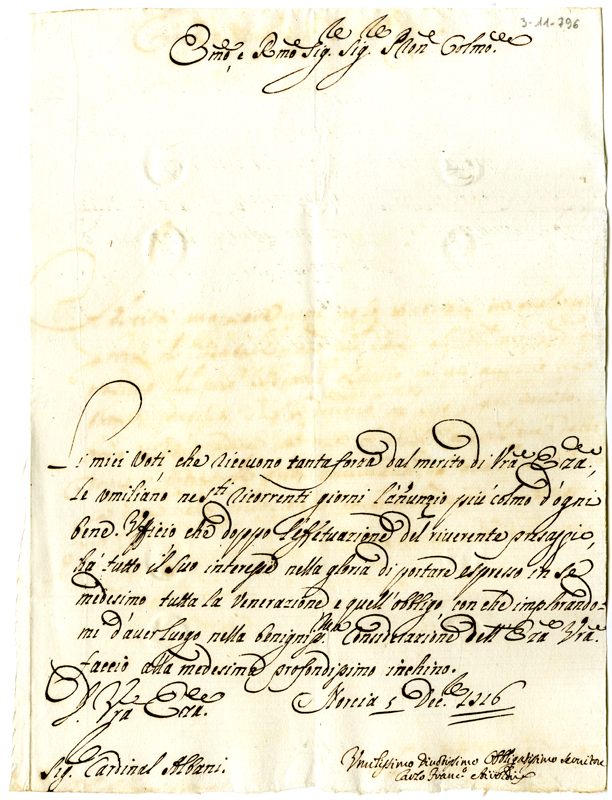 3-11-796
Emo, e Rmo Sig.re Sig.re Pron Colmo
Li miei Voti che ricevono tanta forza dal merito di Vra Emza,
le umiliano nesti ricorrenti giorni l'anunzio più colmo d'ogni
bene. Ufficio che doppo l'effetuazione del riverente presaggio,
ha' tutto il suo interesse nella gloria di portare espresso in se
medesimo tutta la Venerazione e quell'obbligo con che implorando=
mi d'aver luogo nella benignissma Considerazione dell'Emza Vra.
faccio alla medesima profondissimo inchino.
D. Vra Emza. Norcia 5 Dec.bre 1716
Sig. Cardinal Albani.
Umilissimo Divotissimo Obbligatissimo Servitore
Carlo Franco